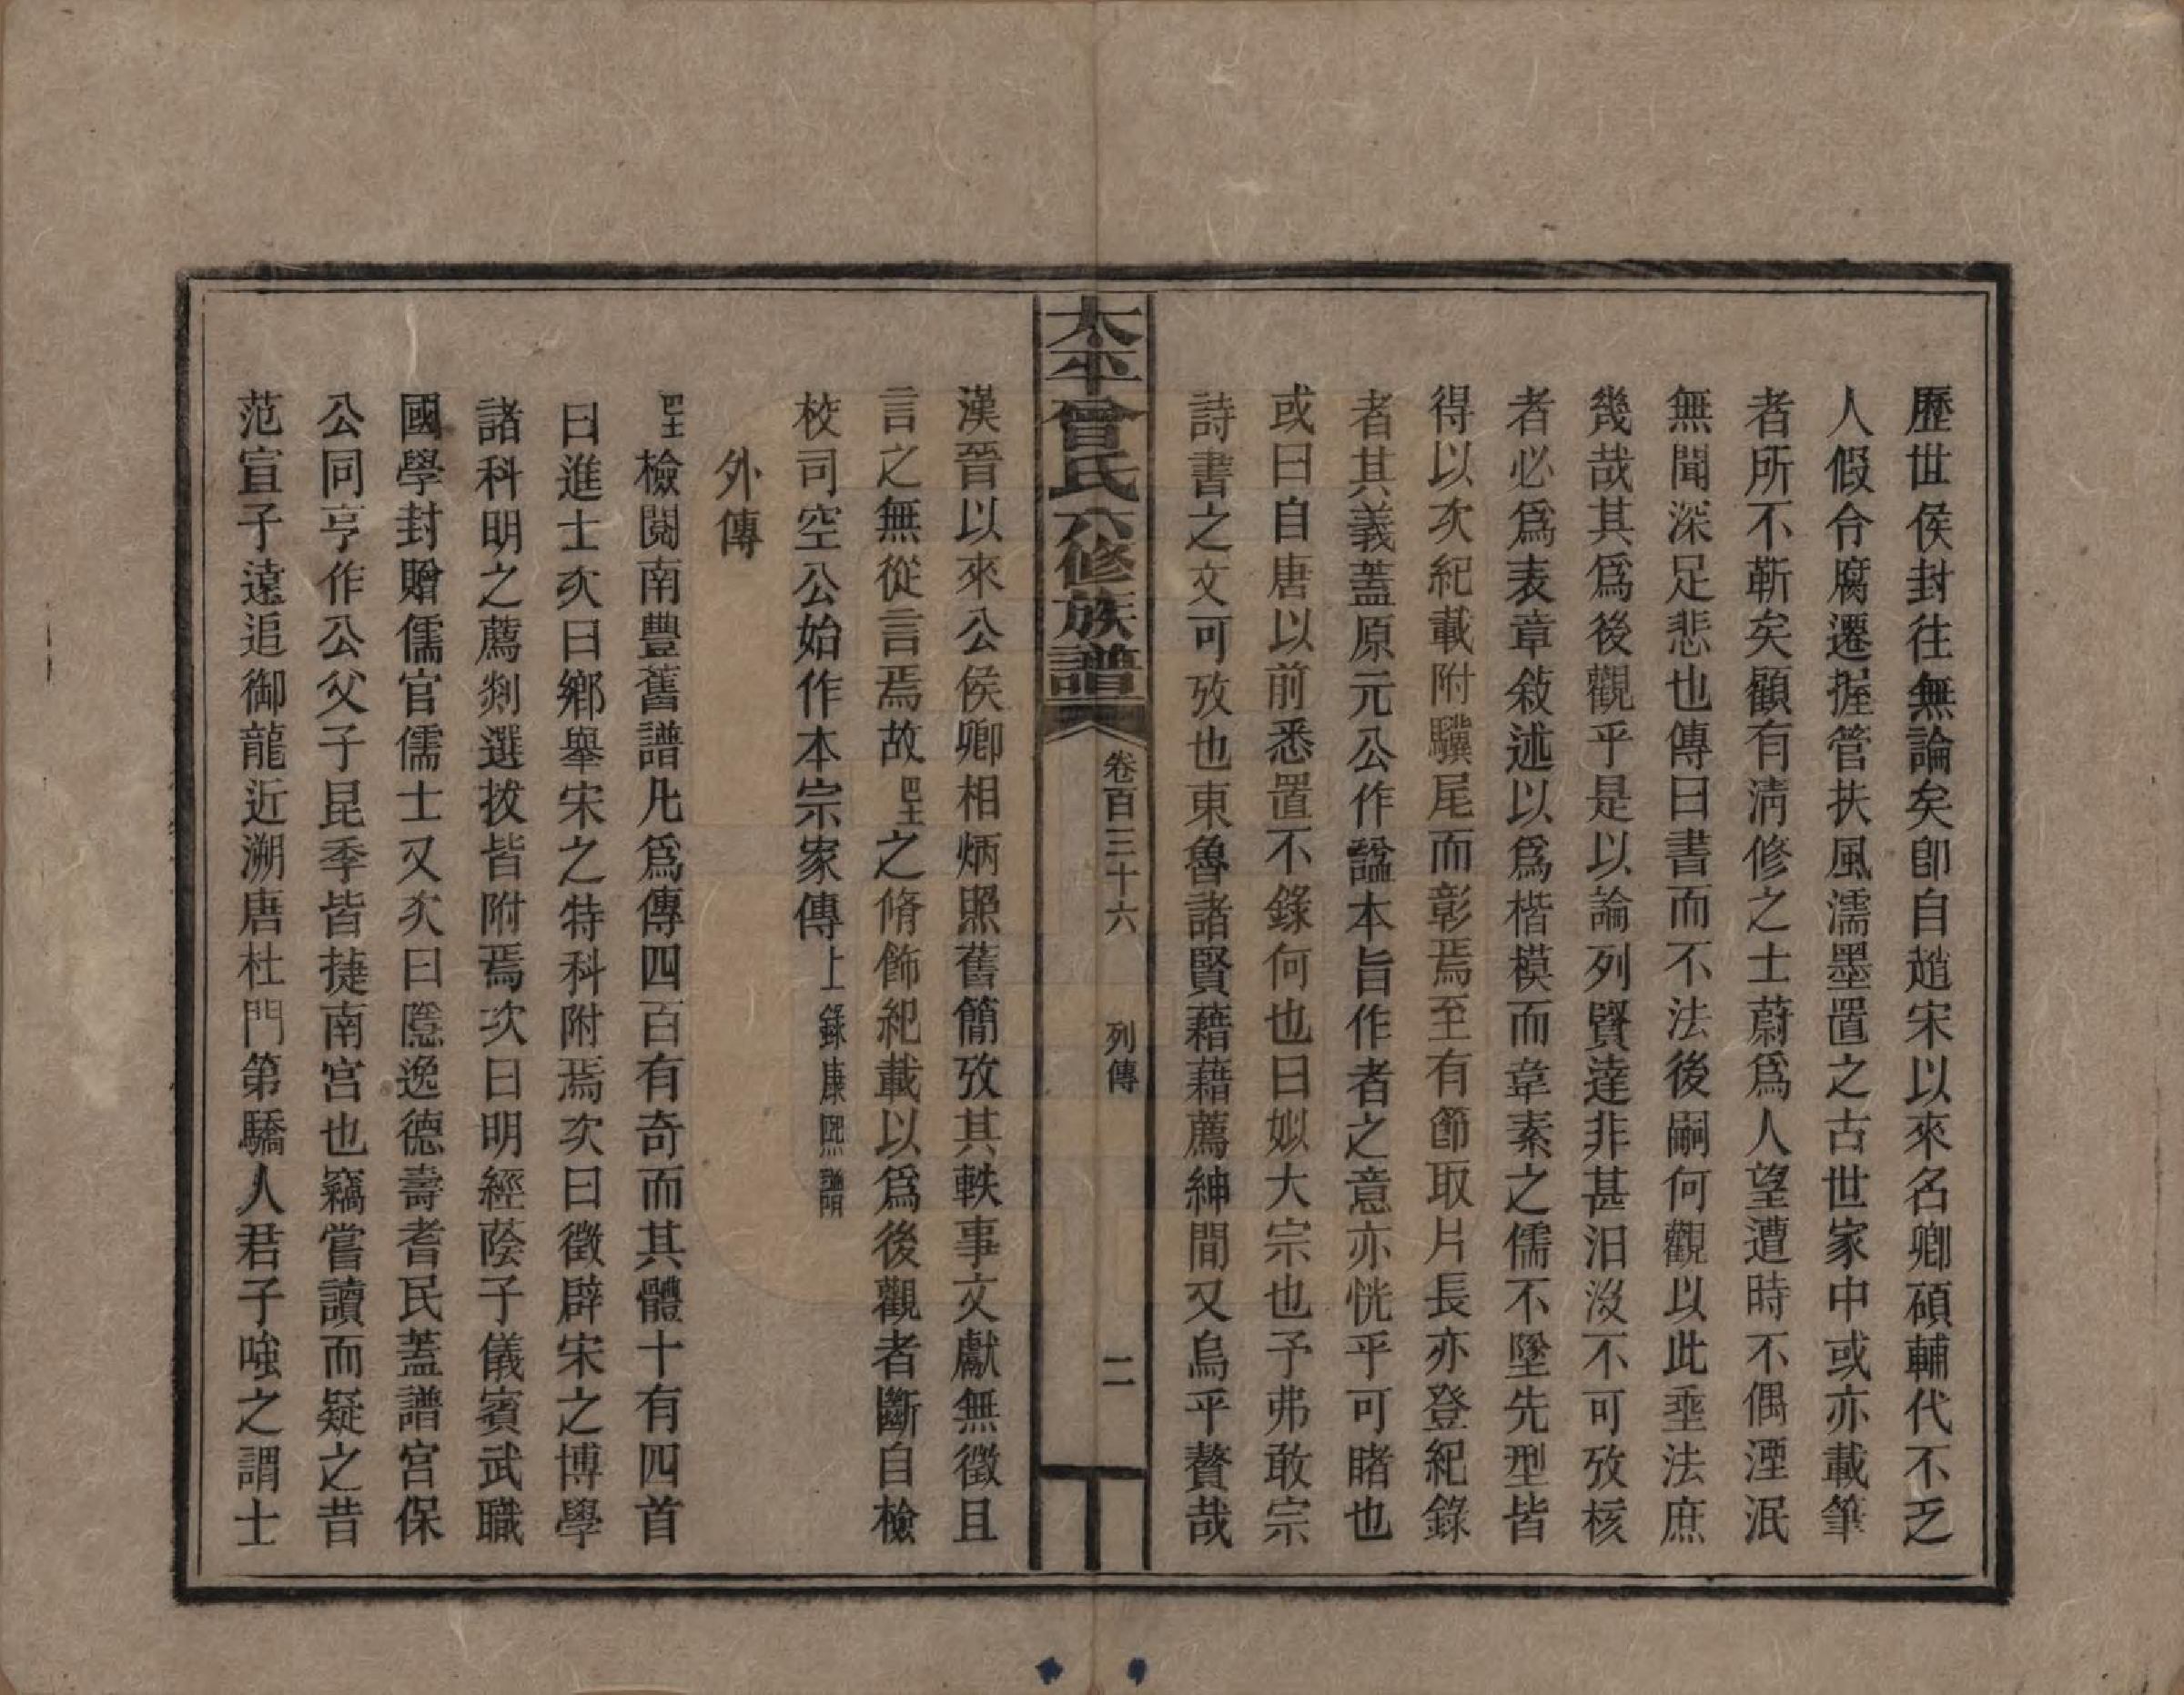 歷世侯封往無論矣卽自趙宋以來名卿碩輔代不乏
人假令腐遷握管扶風濡墨置之古世家中或亦載筆
者所不靳矣顧有淸修之士蔚爲人望遭時不偶湮泯
無聞深足悲也傳曰書而不法後嗣何觀以此垂法庶
幾哉其爲後觀乎是以論列賢達非甚汨沒不可攷核
者必爲表章敍述以爲楷模而韋素之儒不墜先型皆
得以次紀載附驥尾而彰焉至有節取片長亦登紀錄
者其義蓋原元公作諡本旨作者之意亦恍乎可睹也
或曰自唐以前悉置不錄何也曰姒大宗也予弗敢宗
詩書之文可攷也東魯諸賢藉藉薦紳間又烏乎贅哉
太平曾氏六修族譜
卷百三十六
列傳
二
漢晉以來公侯卿相炳照舊簡攷其軼事文獻無徵且
言之無從言焉故之脩飾紀載以爲後觀者斷自檢
校司空公始作本宗家傳上錄康熙譜
外傳
檢閱南豐舊譜凡爲傳四百有奇而其體十有四首
曰進士次曰鄉舉宋之特科附焉次曰徵辟宋之博學
諸科明之薦剡選拔皆附焉次曰明經蔭子儀賓武職
國學封贈儒官儒士又次曰隱逸德壽耆民蓋譜宮保
公同亨作公父子昆季皆捷南宮也竊嘗讀而疑之昔
范宣子遠追御龍近溯唐杜門第驕人君子嗤之謂士